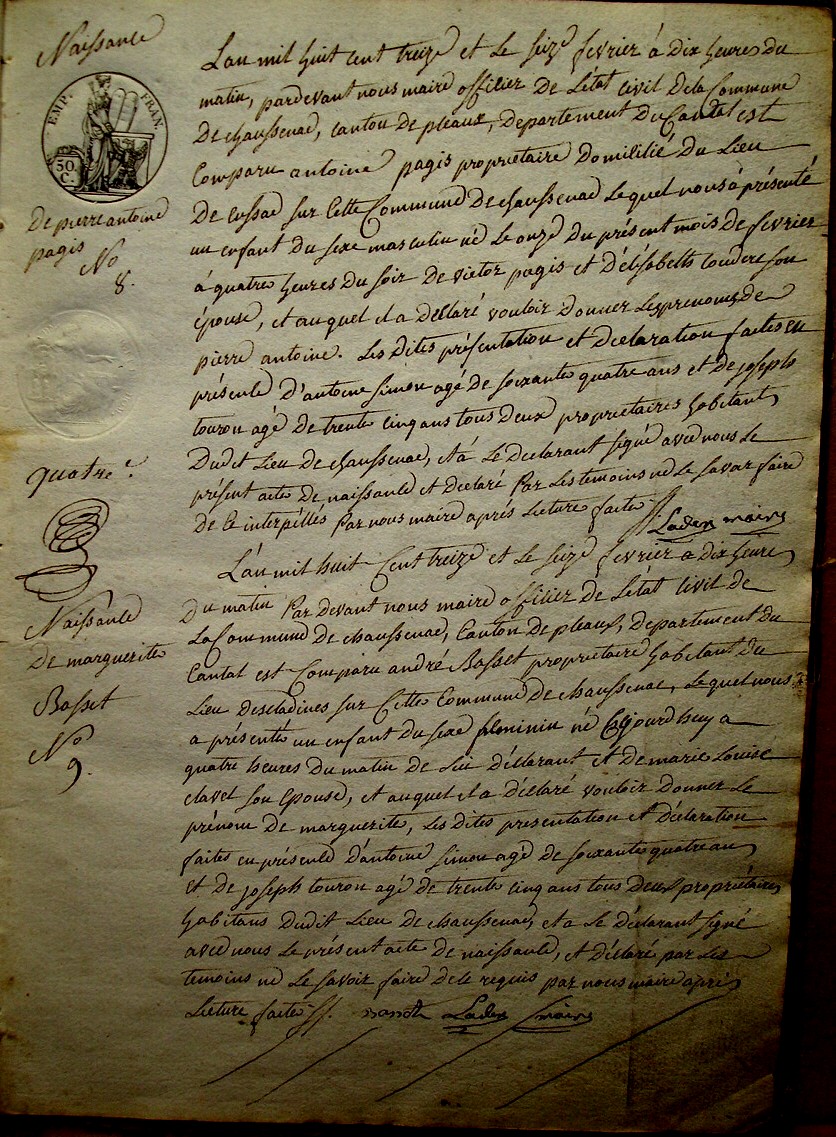 Naissance
EMP. FRAN.
50
C.
De pierre antoine
pagis
No
8.
L'an mil huit cent treize et le seize fevrier à dix heures du
matin, pardevant nous maire officier de L'état civil dela Commune
De chaussenac, canton de pleaux, departement du Cantal est
Comparu antoine pagis proprietaire domicilié du Lieu
De cussac sur cette Commune de chaussenac Lequel nous à présenté
un enfant du sexe masculin né Le onze du présent mois de fevrier
à quatre heures du soir de victor pagis et d'elisabeth couderc son
épouse, et auquel il a déclaré vouloir donner Les prenoms de
pierre antoine. Les dites présentation et declaration faites en
présence d'antoine simon agé de soixante quatre ans et de joseph
touron agé de trente cinq ans tous deux proprietaires habitant
Dudit Lieu de chaussenac, et à Le declarant signé avec nous Le
présent acte de naissance et declaré Par Les temoins ne Le savoir faire
de ce interpellés Par nous maire après Lecture faite
maire
quatre.
Naissance
De marguerite
Basset
No
9.
L'an mil huit Cent treize et Le seize fevrier a dix heure
Du matin Par devant nous maire officier de L'état Civil de
La Commune de chaussenac, Canton de pleaux, departement du
Cantal est Comparu andré Basset proprietaire habitant du
Lieu descladines sur Cette Commune de chaussenac, Lequel nous
a présenté un enfant du sexe féminin né aujourd'huy a
quatre heures du matin de Lui déclarant et de marie Louise
clavet son Epouse, et auquel il a déclaré vouloir donner Le
prénom de marguerite, Les dites presentation et déclaration
faites en présence d'antoine simon agé de soixante quatre an
et de joseph touron agé de trente cinq ans tous deux propriétaires
habitans Dudit Lieu de chaussenac et a Le déclarant signé
avec nous Le présent acte de naissance, et déclaré par Les
temoins ne Le savoir faire de ce requis par nous maire après
Lecture faite maire